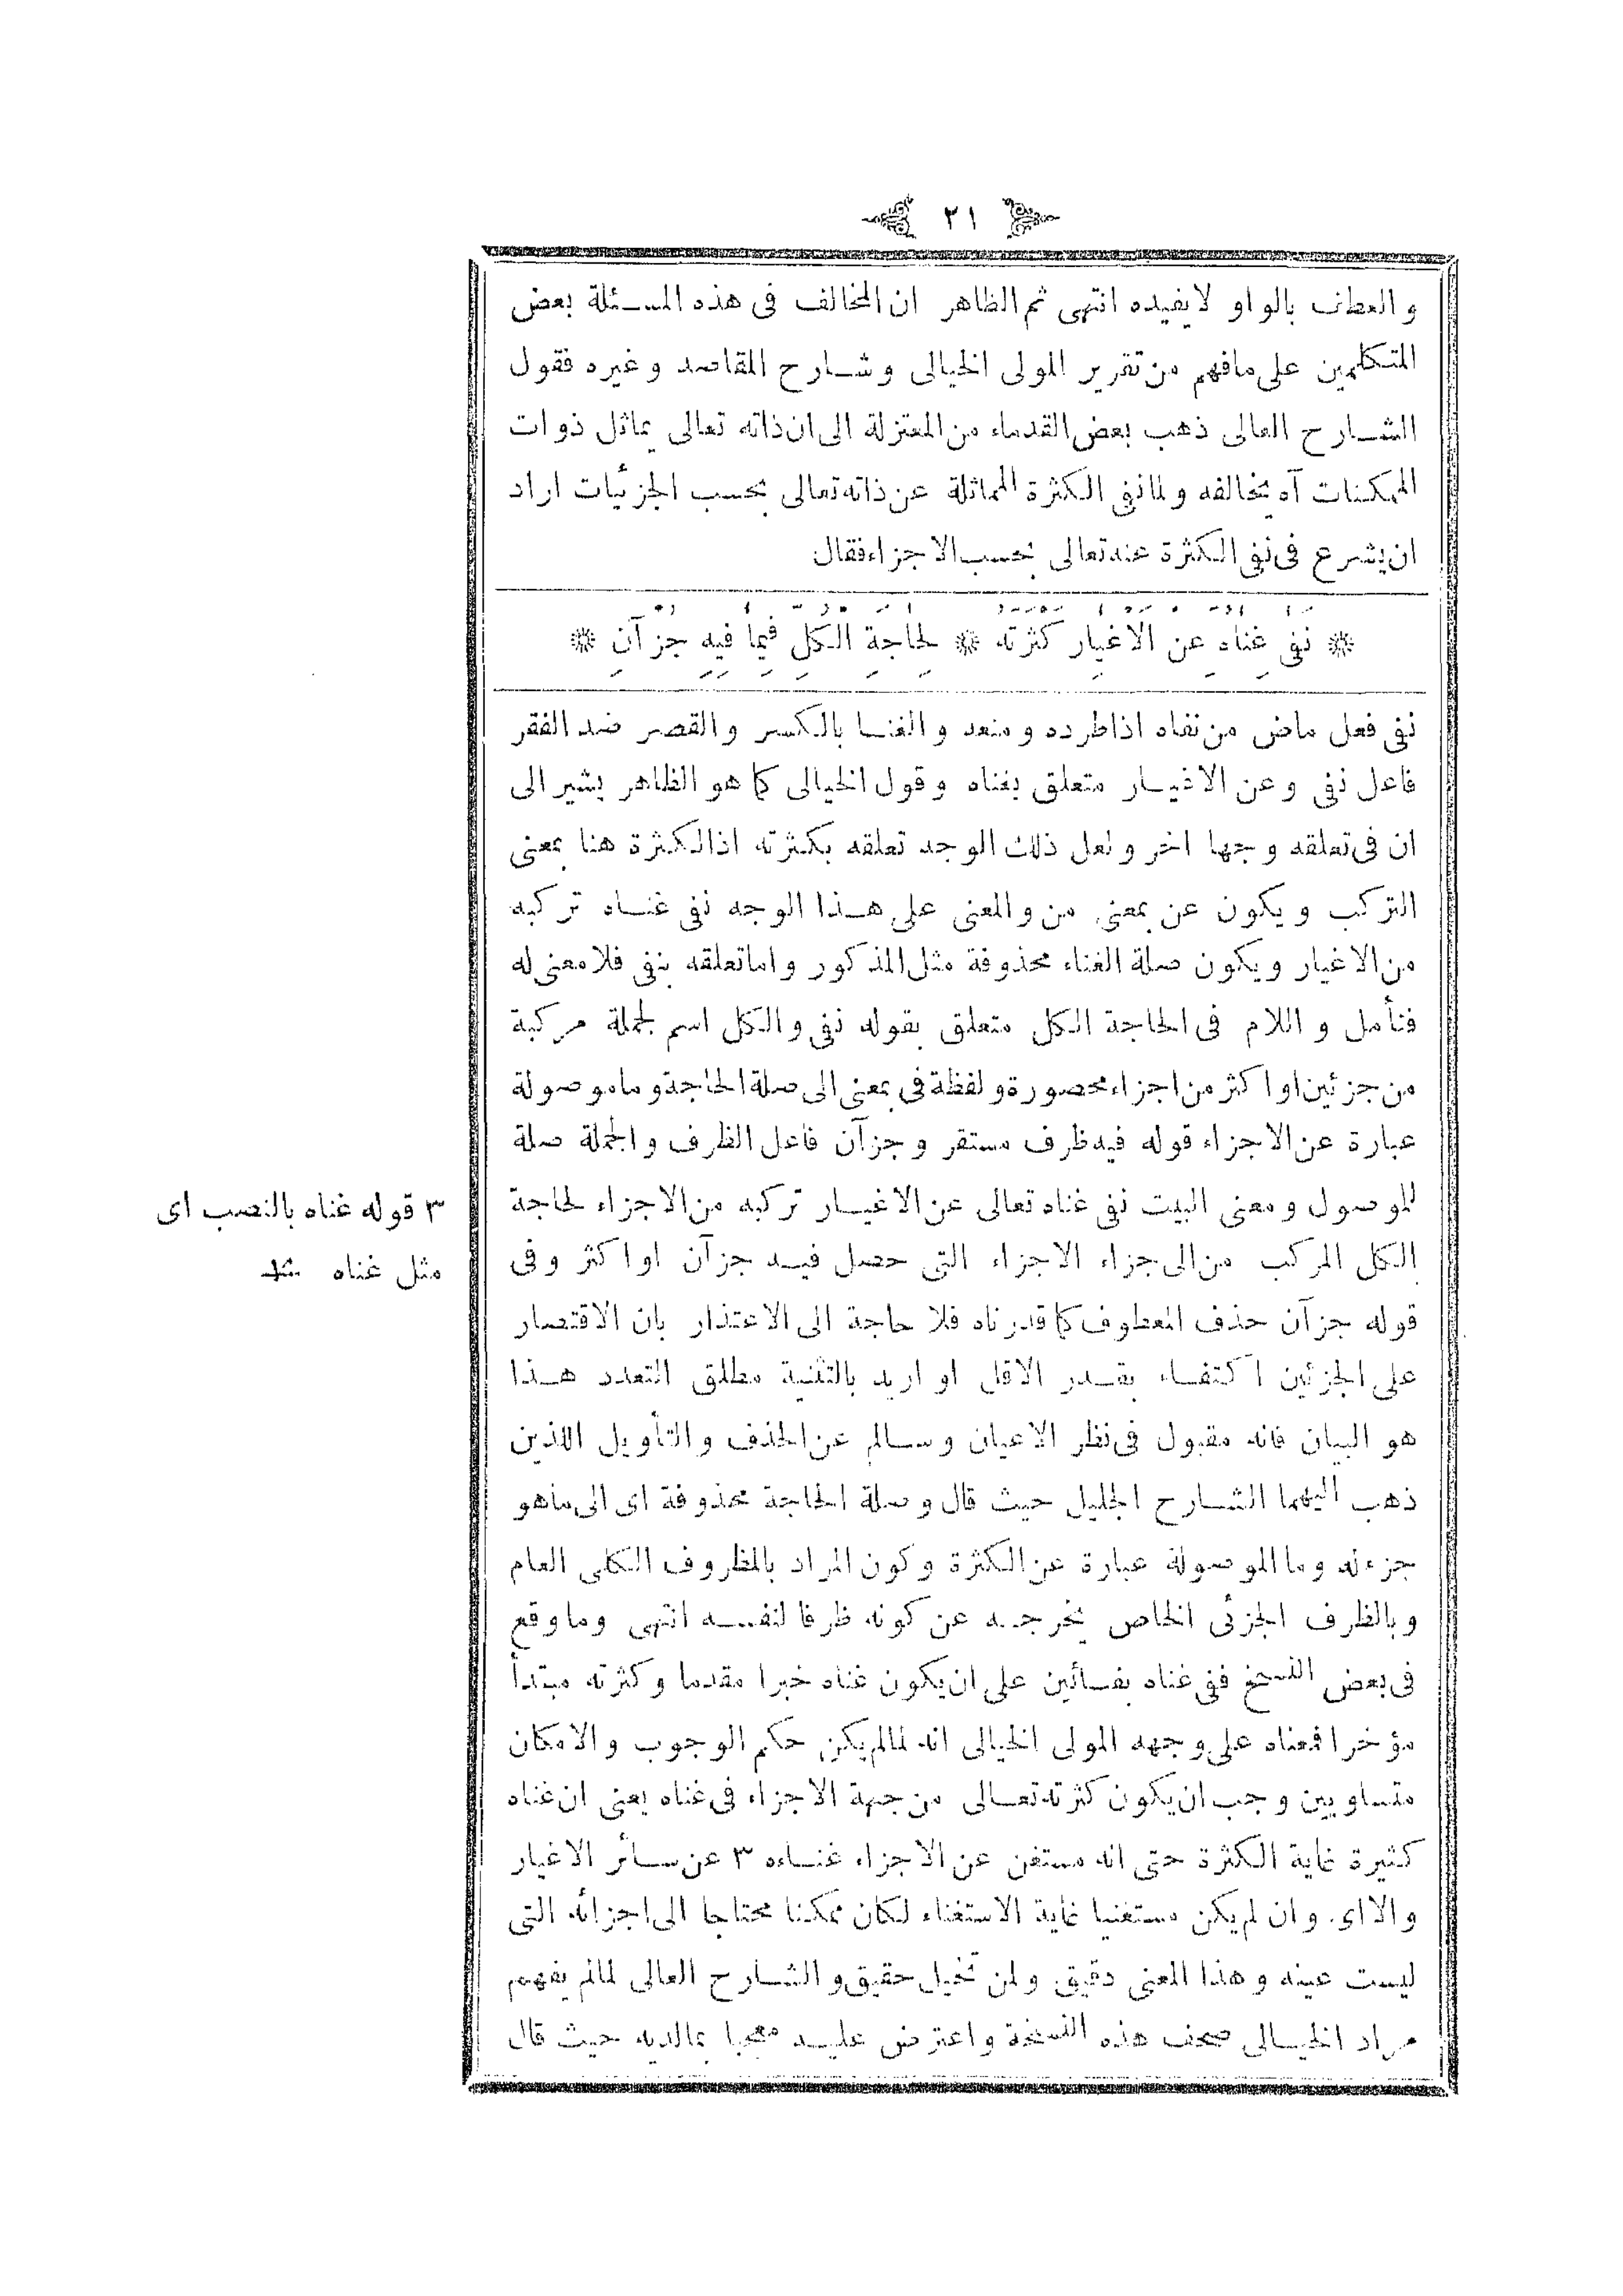 ٢١
والعطف بالواو لايفيده انتهى ثم الظاهر ان المخالف فى هذه المسئلة بعض
المتكلمين على مافهم من تقرير المولى الخيالى وشارح المقاصد وغيره فقول
الشارح العالى ذهب بعض القدماء من المعتزلة الى ان ذاته تعالى يماثل ذوات
الممكنات آه يخالفه ولما نفى الكثرة المماثلة عن ذاته تعالى بحسب الجزئيات اراد
ان يشرع فى نفى الكثرة عنه تعالى بحسب الاجزاء فقال
نفى غناه عن الاغيار كثرته لحاجة الكل فيما فيه جزآن
نفى فعل ماض من نفاه اذا طرده ومنعه والغنا بالكسر والقصر ضد الفقر
فاعل نفى وعن الاغيار متعلق بغناه وقول الخيالى كما هو الظاهر يشير الى
ان فى تعلقه وجها اخر ولعل ذلك الوجه تعلقه بكثرته اذ الكثرة هنا بمعنى
التركب ويكون عن بمعنى من والمعنى على هذا الوجه نفى غناه تركبه
من الاغيار ويكون صلة الغناء محذوفة مثل المذكور واما تعلقه بنفى فلا معنى له
فتأمل واللام فى الحاجة الكل متعلق بقوله نفى والكل اسم لجملة مركبة
من جزئين او اكثر من اجزاء محصورة ولفظة فى بمعنى الى صلة الحاجة وما موصولة
عبارة عن الاجزاء قوله فيه ظرف مستقر وجزآن فاعل الظرف والجملة صلة
الموصول ومعنى البيت نفى غناه تعالى عن الاغيار تركبه من الاجزاء لحاجة
الكل المركب من الى جزاء الاجزاء التى حصل فيه جزآن او اكثر وفى
قوله جزآن حذف المعطوف كما قدرناه فلا حاجة الى الاعتذار بان الاقتصار
على الجزئين اكتفاء بقدر الاقل او اريد بالتثنية مطلق التعدد هذا
هو البيان فانه مقبول فى نظر الاعيان وسالم عن الحذف والتأويل اللذين
ذهب اليهما الشارح الجليل حيث قال وصلة الحاجة محذوفة اى الى ماهو
جزءله وما الموصولة عبارة عن الكثرة وكون المراد بالمظروف الكلى العام
وبالظرف الجزئى الخاص يخرجه عن كونه ظرفا لنفسه انتهى وما وقع
فى بعض النسخ ففى غناه بفائين على ان يكون غناه خبرا مقدما وكثرته مبتدأ
مؤخرا فمعناه على وجهه المولى الخيالى انه لمالم يكن حكم الوجوب والامكان
متساويين وجب ان يكون كثرته تعالى من جهة الاجزاء فى غناه يعنى ان غناه
كثيرة غاية الكثرة حتى انه مستغن عن الاجزاء غناءه ٣ عن سائر الاغيار
والا اى وان لم يكن مستغنيا غاية الاستغناء لكان ممكنا محتاجا الى اجزائه التى
ليست عينه وهذا المعنى دقيق ولمن تخيل حقيق والشارح العالى لمالم يفهم
مراد الخيالى صحف هذه النسخة واعترض عليه معجبا بمالديه حيث قال
٣ قوله غناه بالنصب اى
مثل غناه